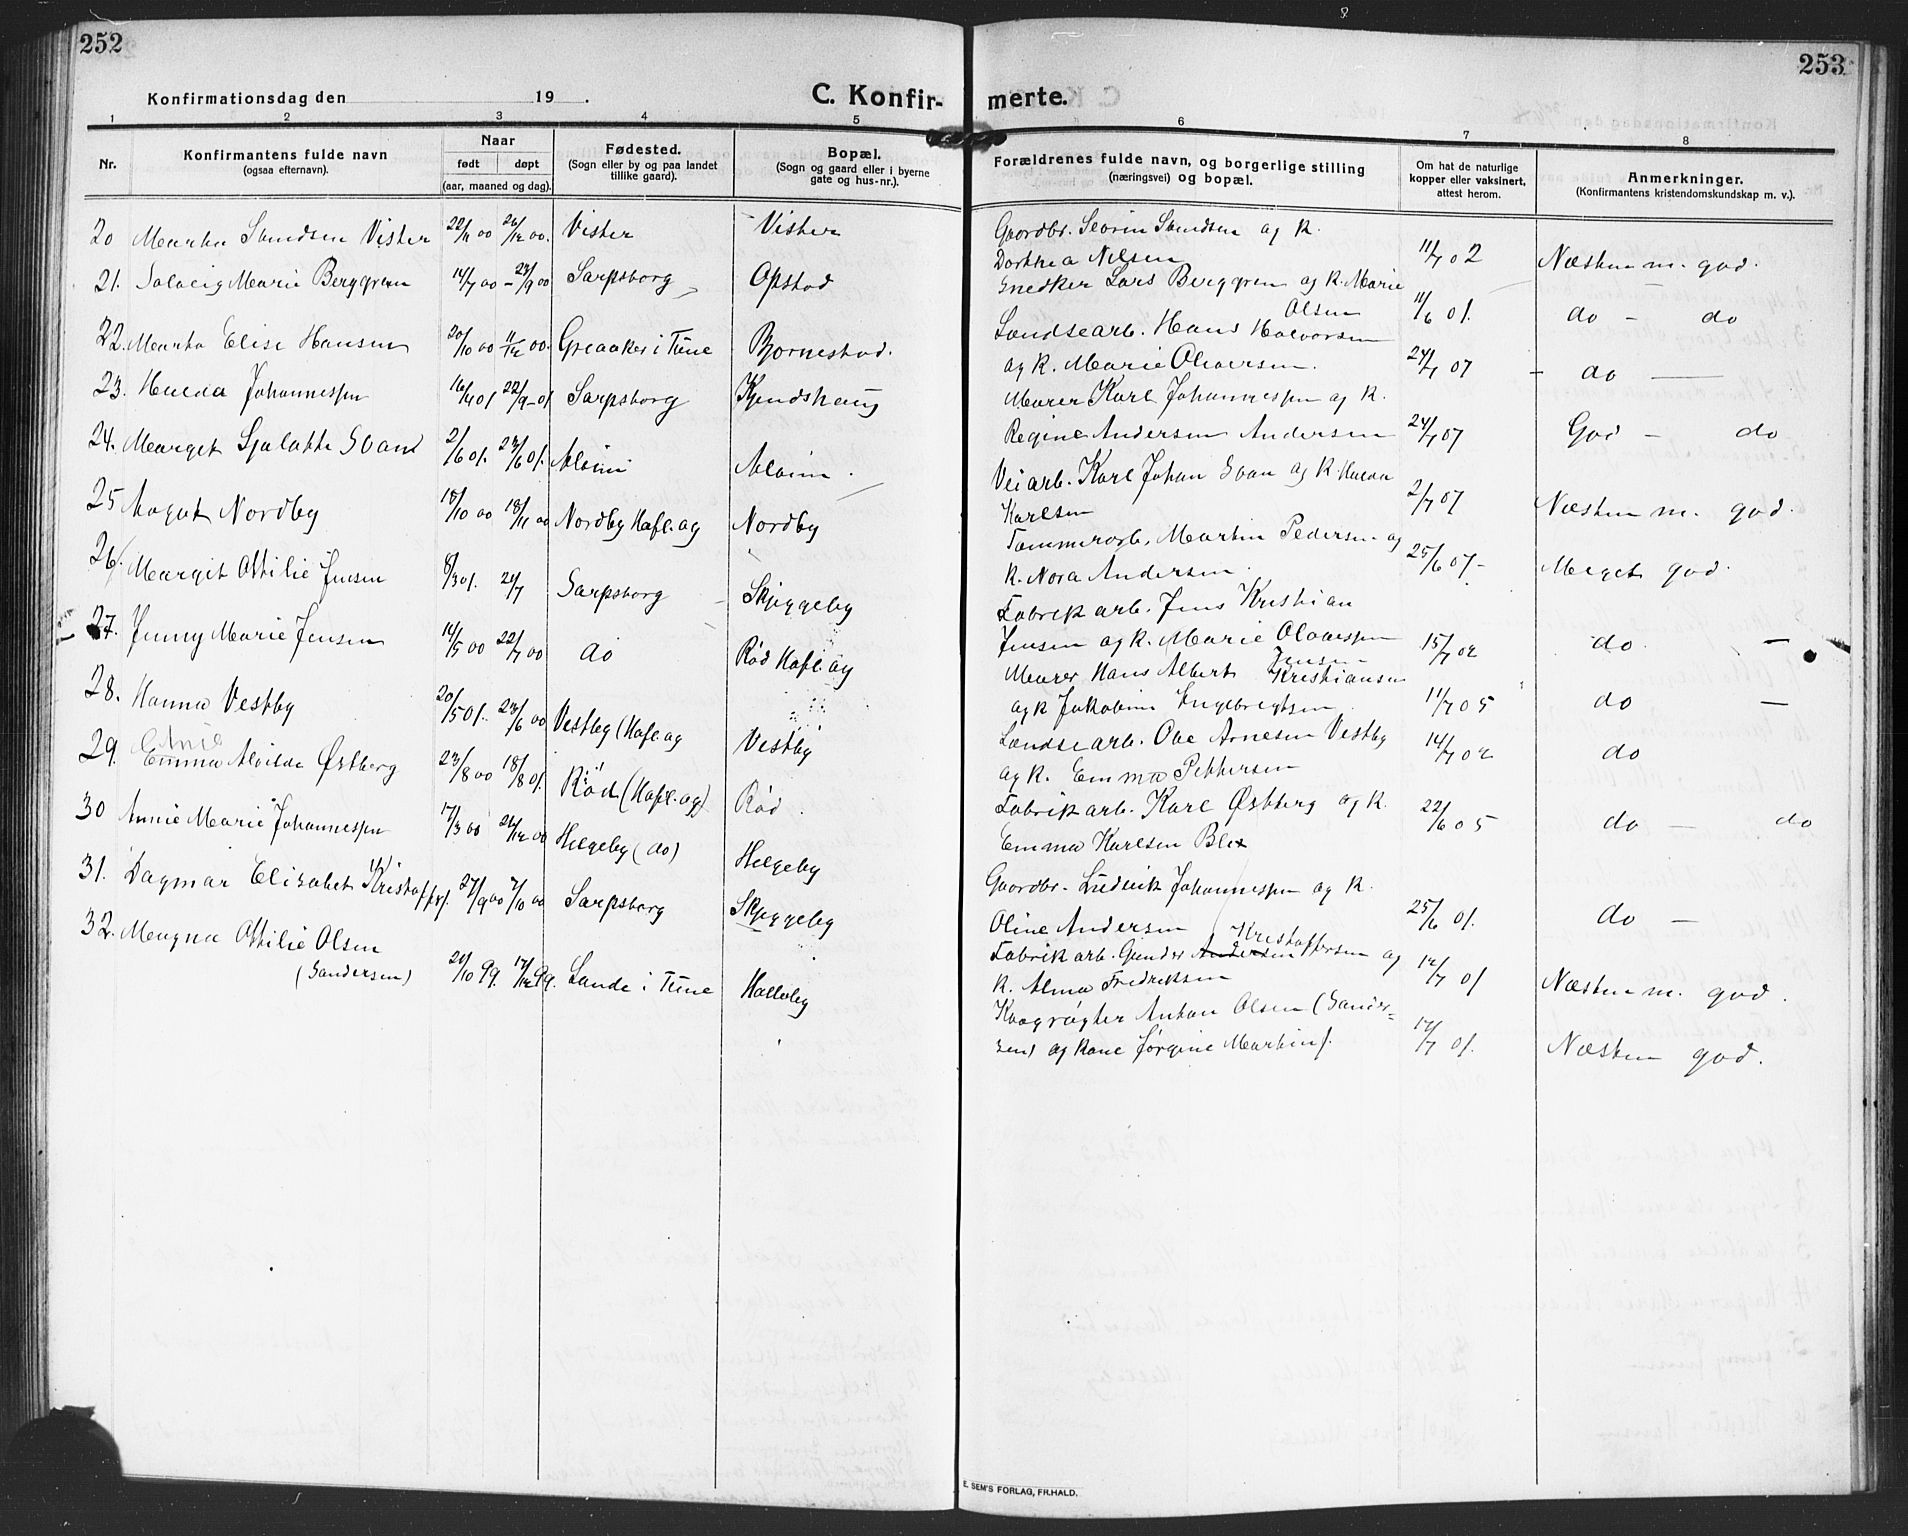 252
Konfirmationsdag den 19 .
C. Konfir-
1 2 3 4 5
Nr.
Konfirmantens fulde navn
(ogsaa efternavn).
Naar
født døpt
(aar, maaned og dag).
Fødested.
(Sogn eller by og paa landet
tillike gaard).
Bopæl.
(Sogn og gaard eller i byerne
gate og hus-nr.).
20 Marta Samdsen Vister 22/11 00 26/12 00. Vister Vister
21. Solveig Marie Berggren 14/7 00 - 23/9 00 Sarpsborg Opstad
22. Marta Elise Hansen 20/10 00 11/12 00. Greaaker i Tune Bjørnestad.
23. Hulda Johannessen 16/4 01 22/9-01 Sarpsborg Kjendshaug
24. Marget Sjalotte Svan 2/6 01. 23/6 01. Alvim Alvim .
25 Aagot Nordby 18/10 00 18/11 00 Nordby Hafl. ag Nordby
26. Margit Otilie Jensen 8/3 01. 21/7 Sarpsborg Skjeggeby
27. Jenny Marie Jensen 14/5 00 22/7 00 do Rød Hafl. ag
28. Hanna Vestby 20/5 01. 23/6 00 Vestby (Hafl. ag Vestby
29. Emma Alvilde Østberg 23/8 00 18/8 01. Rød (Hafl. ag). Rød .
30 Annie Marie Johannessen 17/3 00 26/12 00 Helgeby (do) Helgeby
31. Dagmar Elisabet Kristoffers. 27/9 00 7/10 00 Sarpsborg Skjeggeby
32. Magna Otilie Olsen
(Sandersen) 21/10 99. 17/12 99. Lande i Tune Halleby
253
merte.
6 7 8
Forældrenes fulde navn, og borgerlige stilling
(næringsvei) og bopæl.
Om hat de naturlige
kopper eller vaksinert,
attest herom.
Anmerkninger.
(Konfirmantens kristendomskundskap m. v.).
Gaardbr. Severin Samdsen og k.
Dorthea Nilsen 11/7 02 Næsten m. god.
Snedker Lars Berggren og k. Marie
Olsen 11/6 01. do - do
Landsearb. Hans Halvorsen
og k. Marie Olavesen. 24/7 07 - do
Murer Karl Johannessen og k.
Regine Andersen Andersen 24/7 07 God - do
Veiarb. Karl Johan Svan og k. Hulda
Karlsen 2/7 07 Næsten m. god.
Tømmerarb. Martin Pedersen og
k. Nora Andersen. 25/6 07- Meget god.
Fabrikarb. Jens Kristian
Jensen og k. Marie Olavessen 15/7 02 do. -
Jensen
Murer Hans Albert Kristiansen
og k Jakobine Ingebregtsen 11/7 05 do -
Landsearb. Ole Arnesen Vestby
og k. Emma Pettersen 14/7 02 do
Fabrikarb. Karl Østberg og k.
Emma Karlsen Blix 22/6 05 do - do
Gaardbr. Ludvik Johannessen og k.
Oline Andersen 25/6 01. do -
Kristoffersen
Fabrikarb. Gunder Andersen og
k. Alma Fredriksen 12/7 01 Næsten m. god.
Krøgrøgter Anton Olsen (Sander-
sen) og kone Jørgine Martins. 17/7 01. Næsten god.
E. SEM'S FORLAG, FR.HALD.